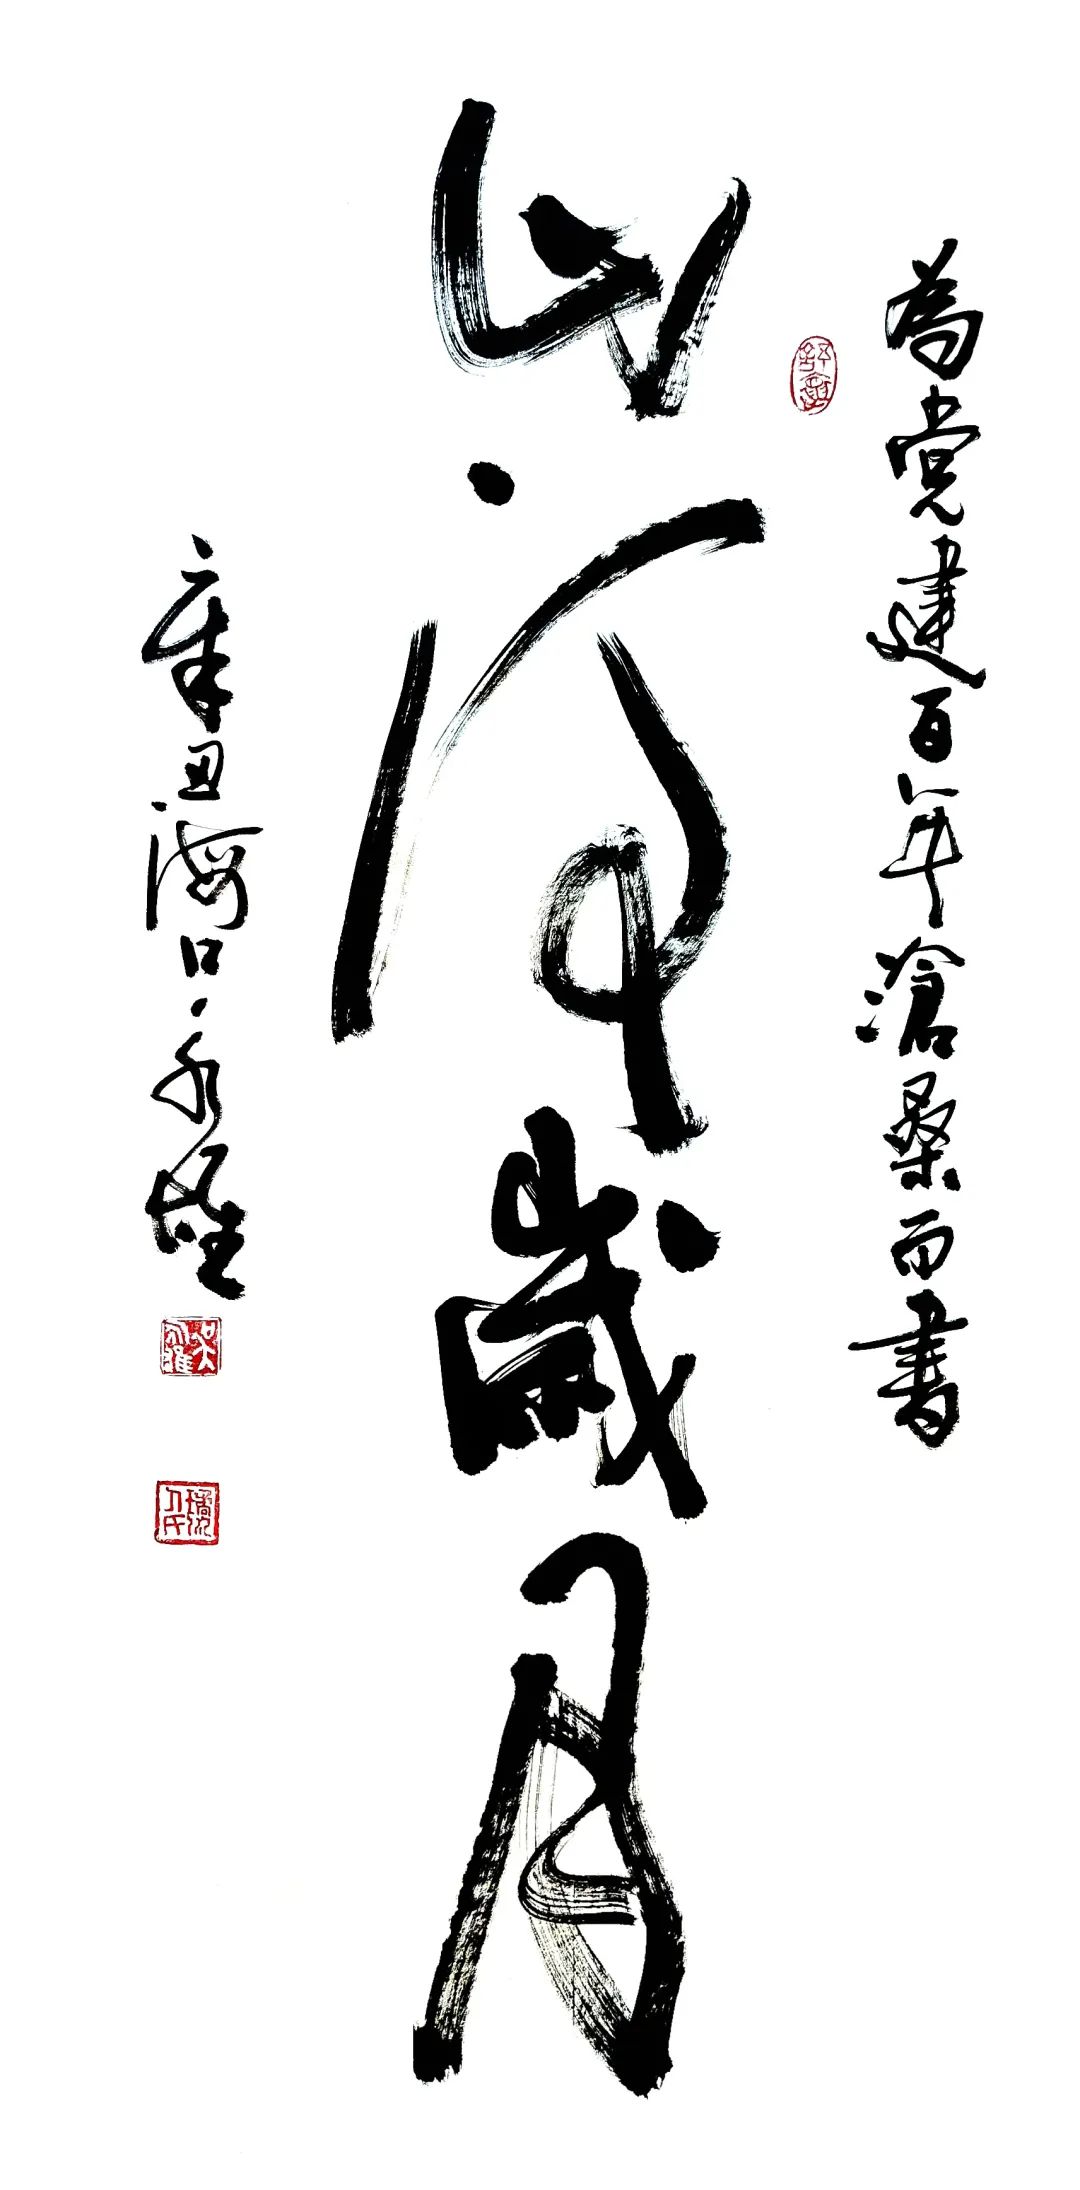 為党建百年滄桑而書
山河歲月
辛丑海口永